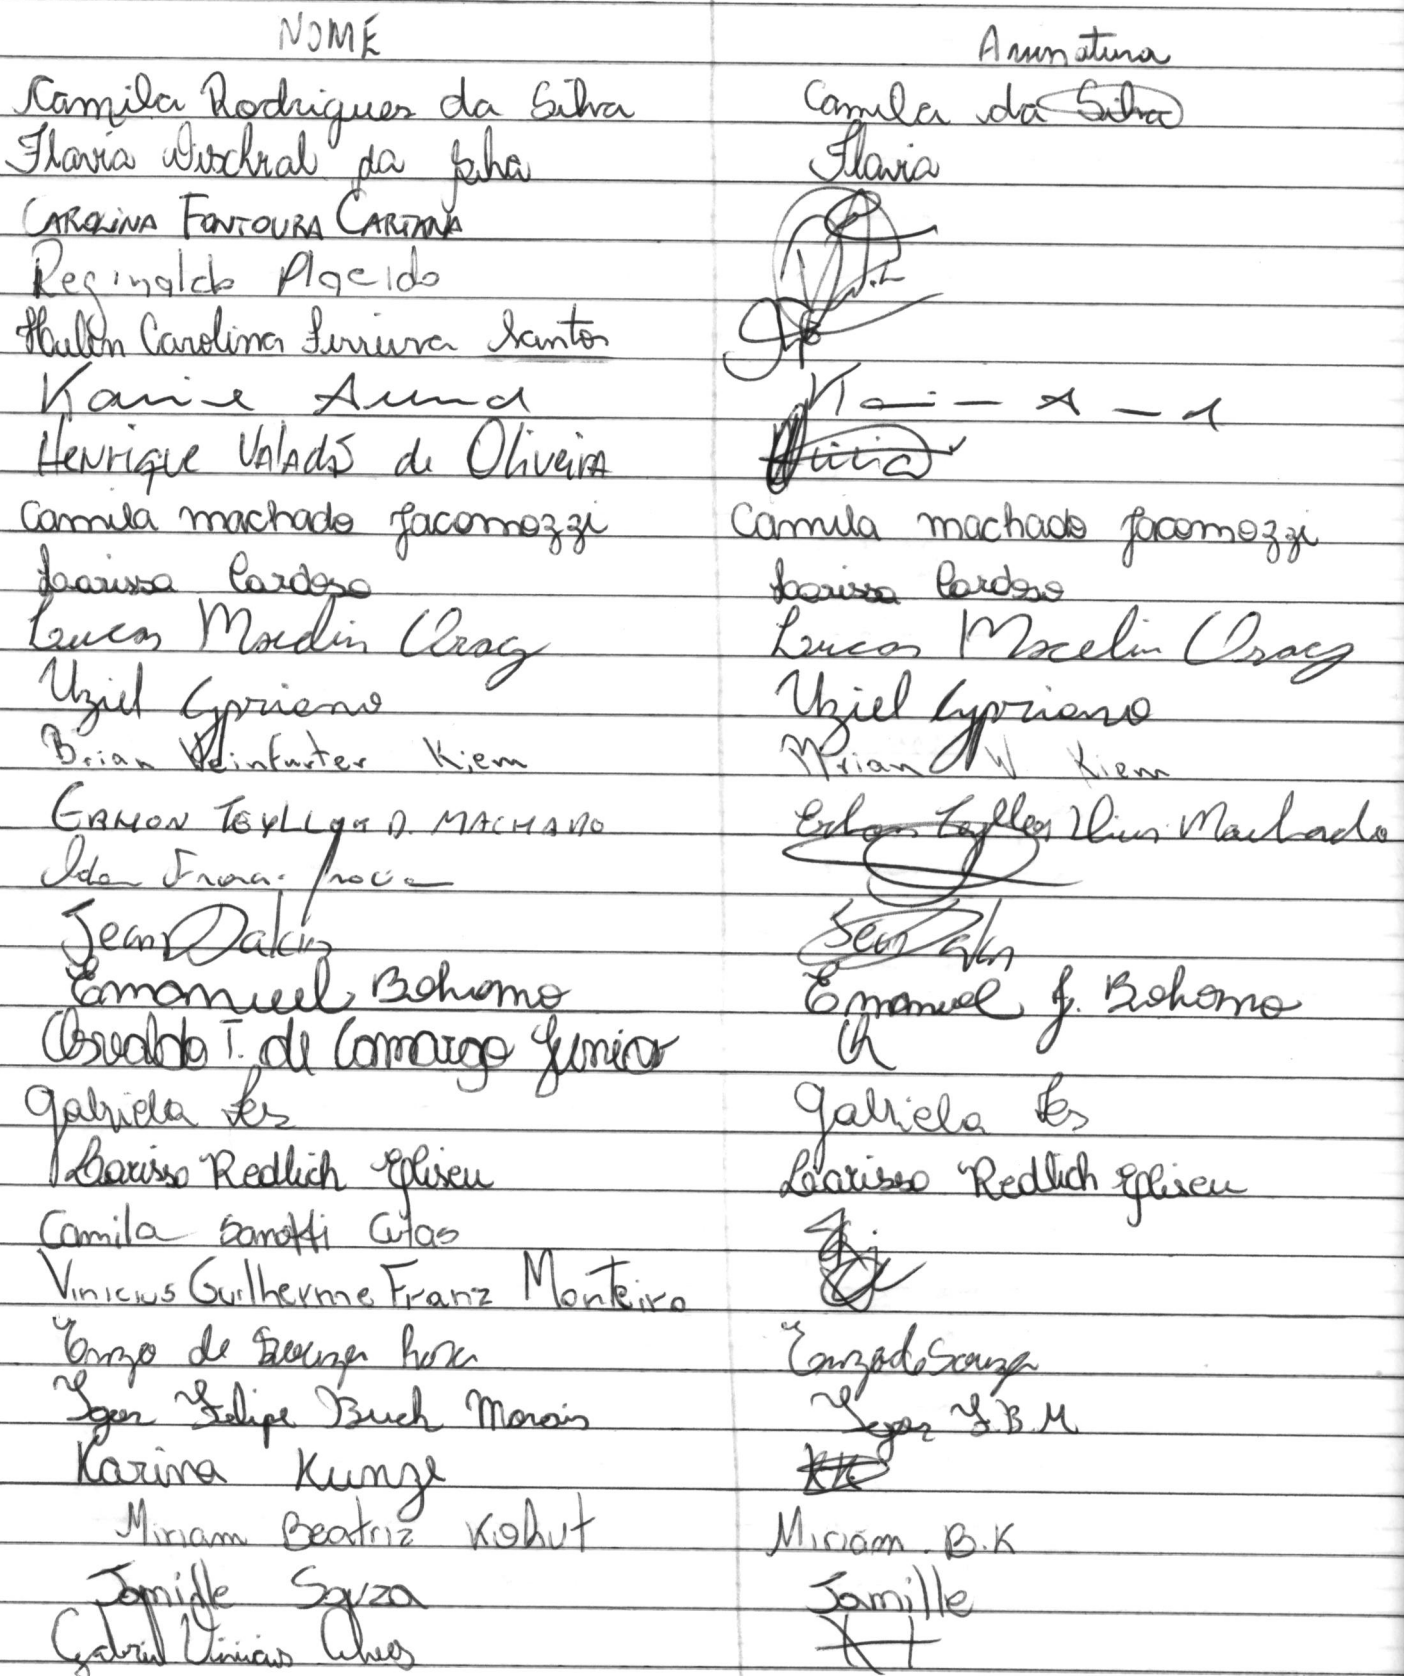 NOME Assinatura
Kamila Rodrigues da Silva Camila da Silva
Flavia Wischral da Flavia
CAROLINA FONTOURA CARTANA
Reginaldo Placido
Carolina Ferreira Santos
Karine Arend
HENRIQUE VALADÃO de OLIVEIRA
Camila machado Jacomozzi Camila machado Jacomozzi
Larissa Cardoso Larissa Cardoso
Lucas Lucas
Uziel Cypriano Uziel Cypriano
Brian Weinfurter Kiem Brian W Kiem
MACHADO Machado
Jean Jean
Emanuel Bohomo Emanuel J. Bohomo
Osvaldo T. de Camargo Junior
Gabriela Gabriela
Larissa Redlich Eliseu Larissa Redlich Eliseu
Camila
Vinicius Guilherme Franz Monteiro
Enzo de Souza Rosa Enzo de Souza
Igor Felipe Buch Morais Igor F.B.M
Karina Kunze KK
Miriam Beatriz Kohut Miriam. B.K
Jamille Souza Jamille
Gabriel Vinicius Alves